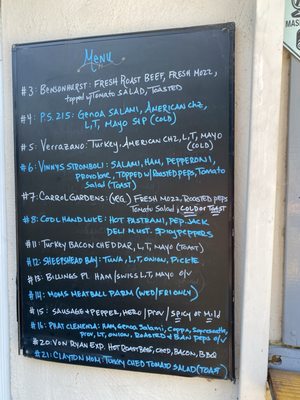 Menu
#3: BENSONHURST: FRESH ROAST BEEF, FRESH MOZZ,
topped w/Tomato SALAD, TOASTED
#4: P.S. 215: GENOA SALAMI, AMERICAN CHZ,
L,T, MAYO S&P (COLD)
#5: VERRAZANO: TURKEY, AMERICAN CHZ, L,T, MAYO
(COLD)
#6: VINNYS STROMBOLI: SALAMI, HAM, PEPPERONI,
PROVOLONE, TOPPED w/ROASTED PEPS, TOMATO
SALAD (TOAST)
#7: CARROL GARDENS: (VEG.) FRESH MOZZ, ROASTED PEPS
TOMATO SALAD, COLD OR TOAST
#8: COOL HAND LUKE: HOT PASTRAMI, PEP JACK
DELI MUST. SPICY PEPPERS
#11: TURKEY BACON CHEDDAR, L,T, MAYO (TOAST)
#12: SHEEPSHEAD BAY: TUNA, L,T, ONION, PICKLE
#13: BILLINGS PL HAM/SWISS L,T, MAYO O/V
#14: MOMS MEATBALL PARM (WED/FRI ONLY)
#15: SAUSAGE & PEPPER, HERO / PROV / SPICY OR MILD
#16: PHAT CLEMENZA: HAM, GENOA SALAMI, COPPA, SOPRESSATTA,
PROV, L,T, ONION, ROASTED & BANA PEPS O/V
#20: VON RYAN EXP. HOT ROAST BEEF, CHED, BACON, BBQ
#21: CLAYTON MOM: TURKEY CHED TOMATO SALAD (TOAST)